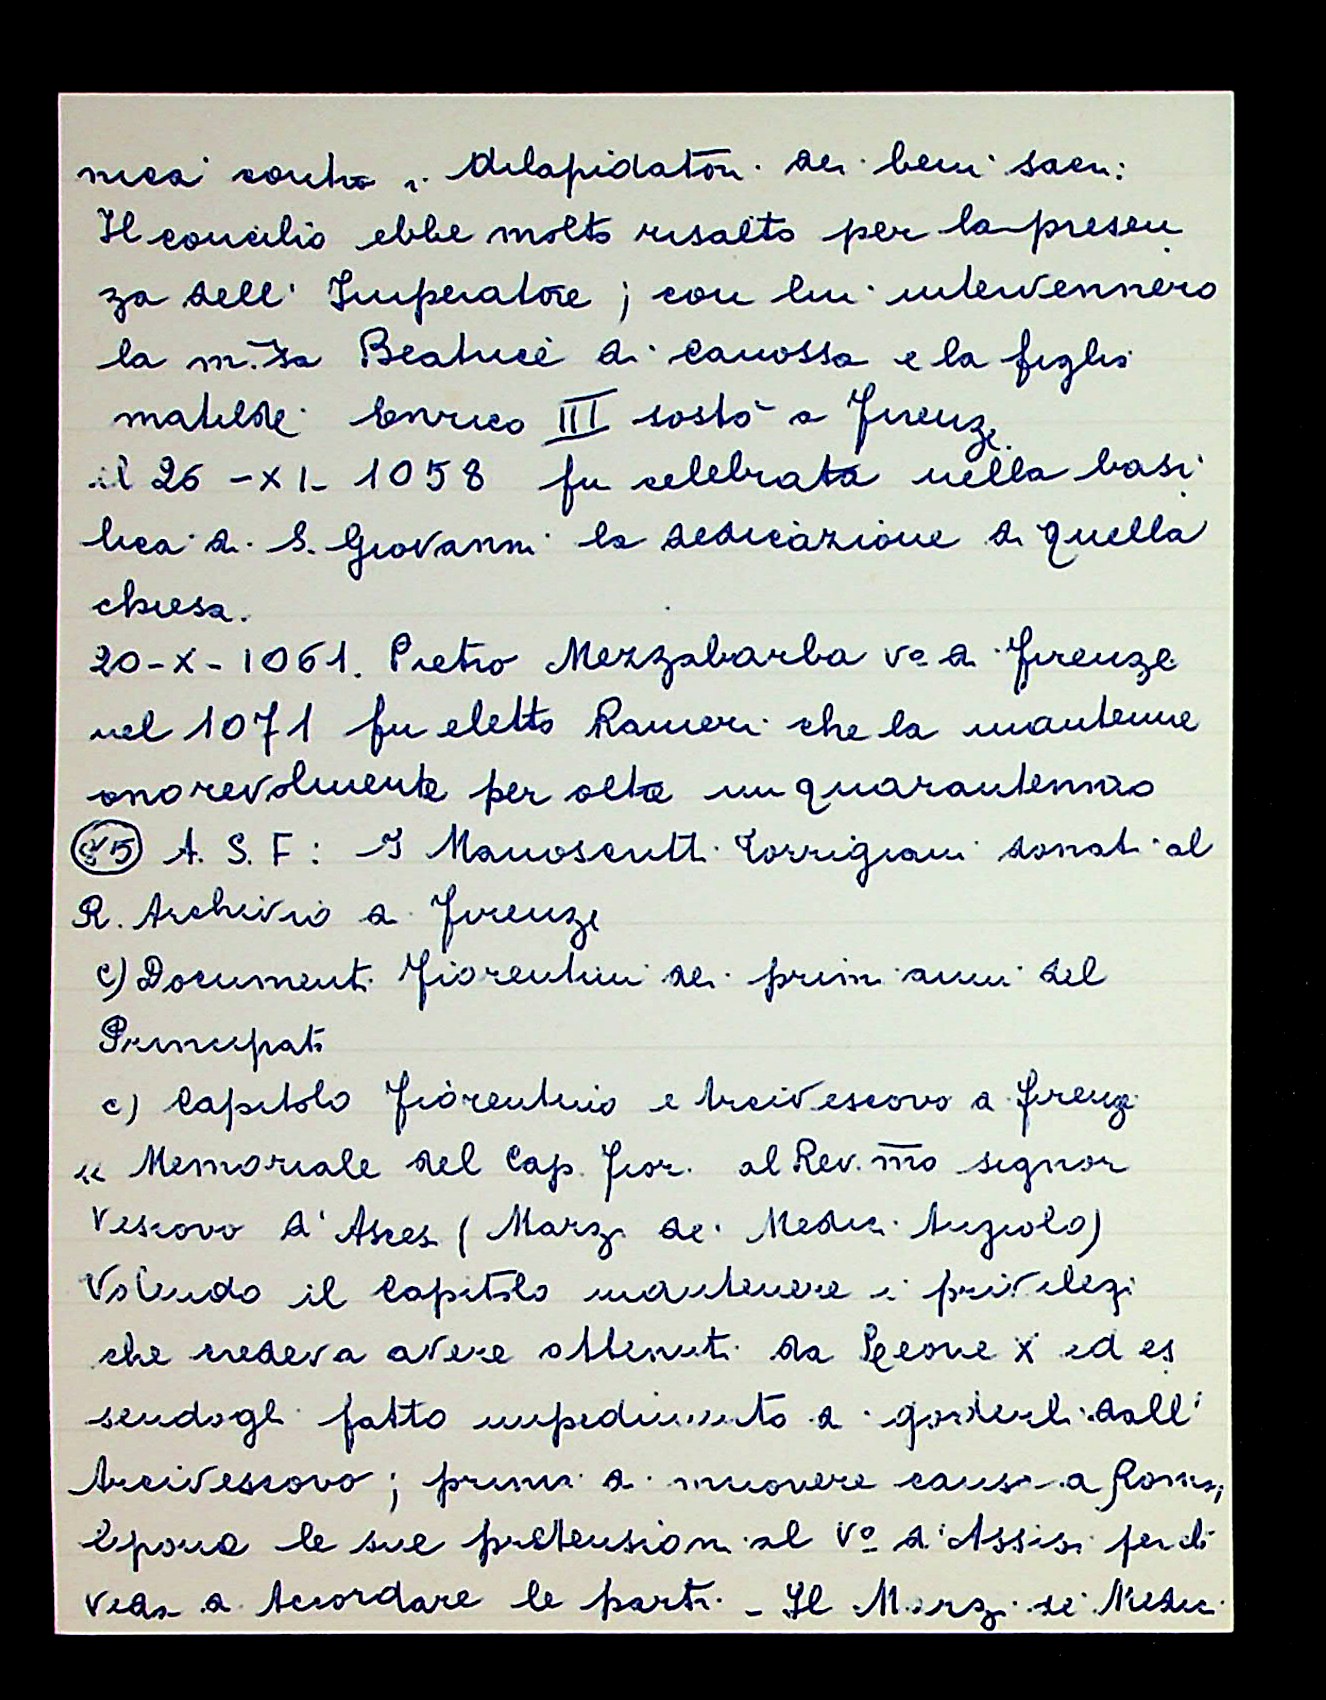 nica contro i dilapidatori dei beni sacri:
Il concilio ebbe molto risalto per la presen
za dell' Imperatore; con lui intervennero
la m.sa Beatrice di Canossa e la figlia
matilde. Enrico III sostò a Firenze.
il 26-XI-1058 fu celebrata nella basi
lica di S. Giovanni la dedicazione di quella
chiesa.
20-X-1061. Pietro Mezzabarba vo di Firenze
nel 1071 fu eletto Ranieri che la mantenne
onorevolmente per oltre un quarantennio
A. S. F: I Manoscritti Torrigiani donati al
R. Archivio di Firenze
c) Documenti Fiorentini dei primi anni del
Principato
c) Capitolo Fiorentino e Arcivescovo di Firenze
" Memoriale del Cap. Fior. al Rev.mo signor
Vescovo d' (Marzi de' Medici Angiolo)
Volendo il Capitolo mantenere i privilegi
che credeva avere ottenuti da Leone X ed es
sendogli fatto impedimento a goderli dall'
Arcivescovo; prima di muovere causa a Roma,
espone le sue pretensioni al Vo d'Assisi perchè
veda di Accordare le parti. - Il Marzi de' Medici